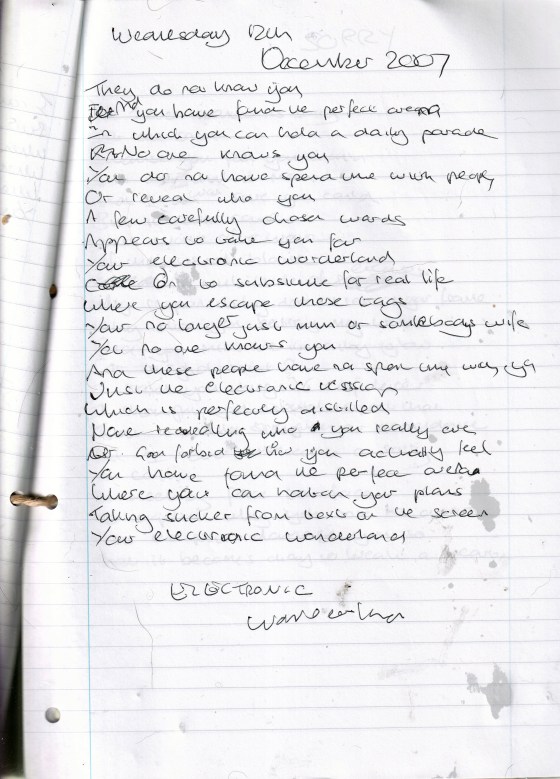 Wednesday 12th
December 2007
They do not know you
And you have found the perfect arena
In which you can hold a daily parade
No one knows you
You do not have spend time with people
Or reveal who you
A few carefully chosen words
Appears to take you far
Your electronic wonderland
On to substitute for real life
Where you escape those tags
Your no longer just mum or somebodys wife
Yet no one knows you
And these people have not spent time with ya
Just the electronic version
Which is perfectly distilled
Never revealing who you really are
Or God forbid how you actually feel
You have found the perfect arena
Where you can hatch your plans
Taking sucker from text on the screen
Your electronic wonderland
ELECTRONIC
Wonderland